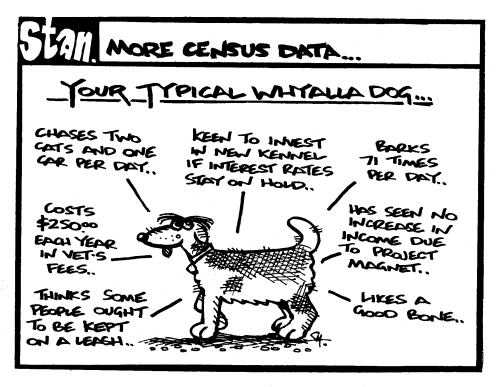 Stan.
MORE CENSUS DATA...
YOUR TYPICAL WHYALLA DOG...
CHASES TWO
CATS AND ONE
CAR PER DAY..
KEEN TO INVEST
IN NEW KENNEL
IF INTEREST RATES
STAY ON HOLD..
BARKS
71 TIMES
PER DAY..
COSTS
$250.00
EACH YEAR
IN VET'S
FEES..
HAS SEEN NO
INCREASE IN
INCOME DUE
TO PROJECT
MAGNET..
THINKS SOME
PEOPLE OUGHT
TO BE KEPT
ON A LEASH..
LIKES A
GOOD BONE..